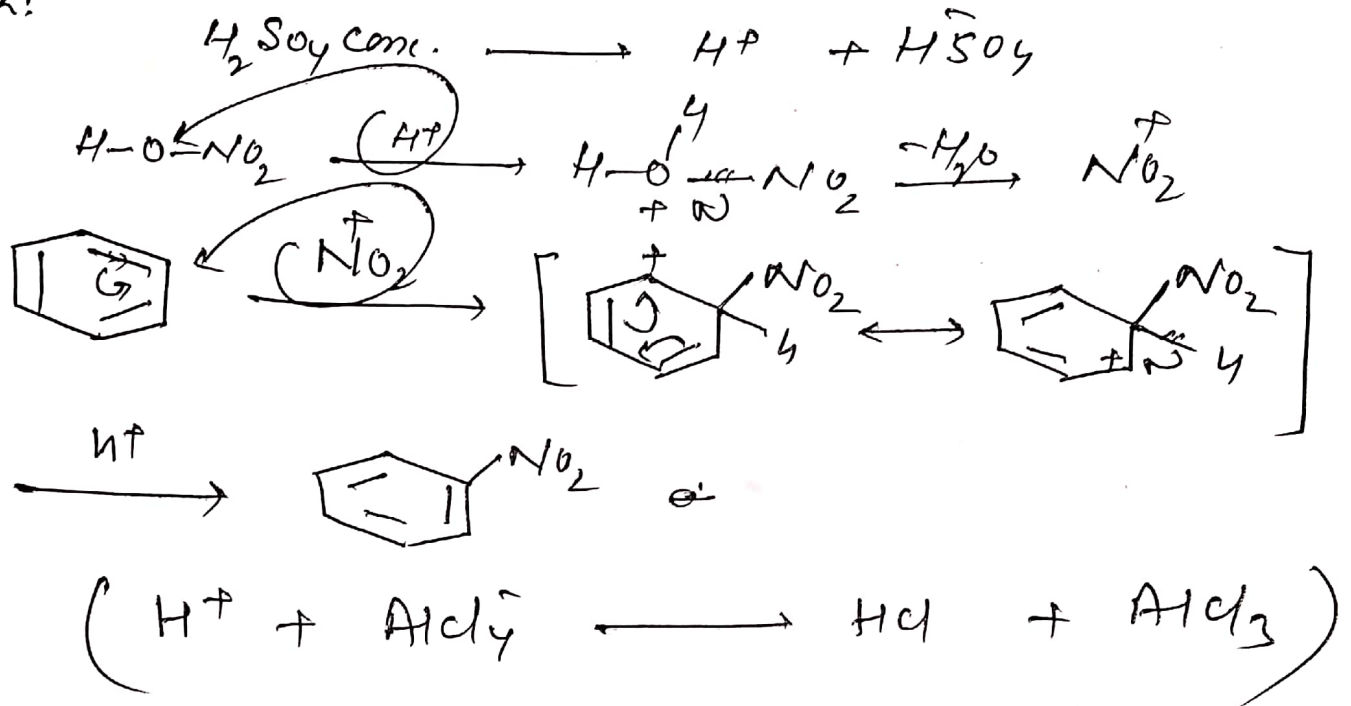 H₂SO₄ conc. ⟶ H⁺ + HSO₄⁻
H–O–NO₂ ⟶ (H⁺) H–O–NO₂ –H₂O ⟶ NO₂⁺
H
+ N
NO₂⁺ ⟶ [ + NO₂ H ⟷ NO₂ + N H ]
H⁺ ⟶ NO₂
( H⁺ + AlCl₄⁻ ⟶ HCl + AlCl₃ )